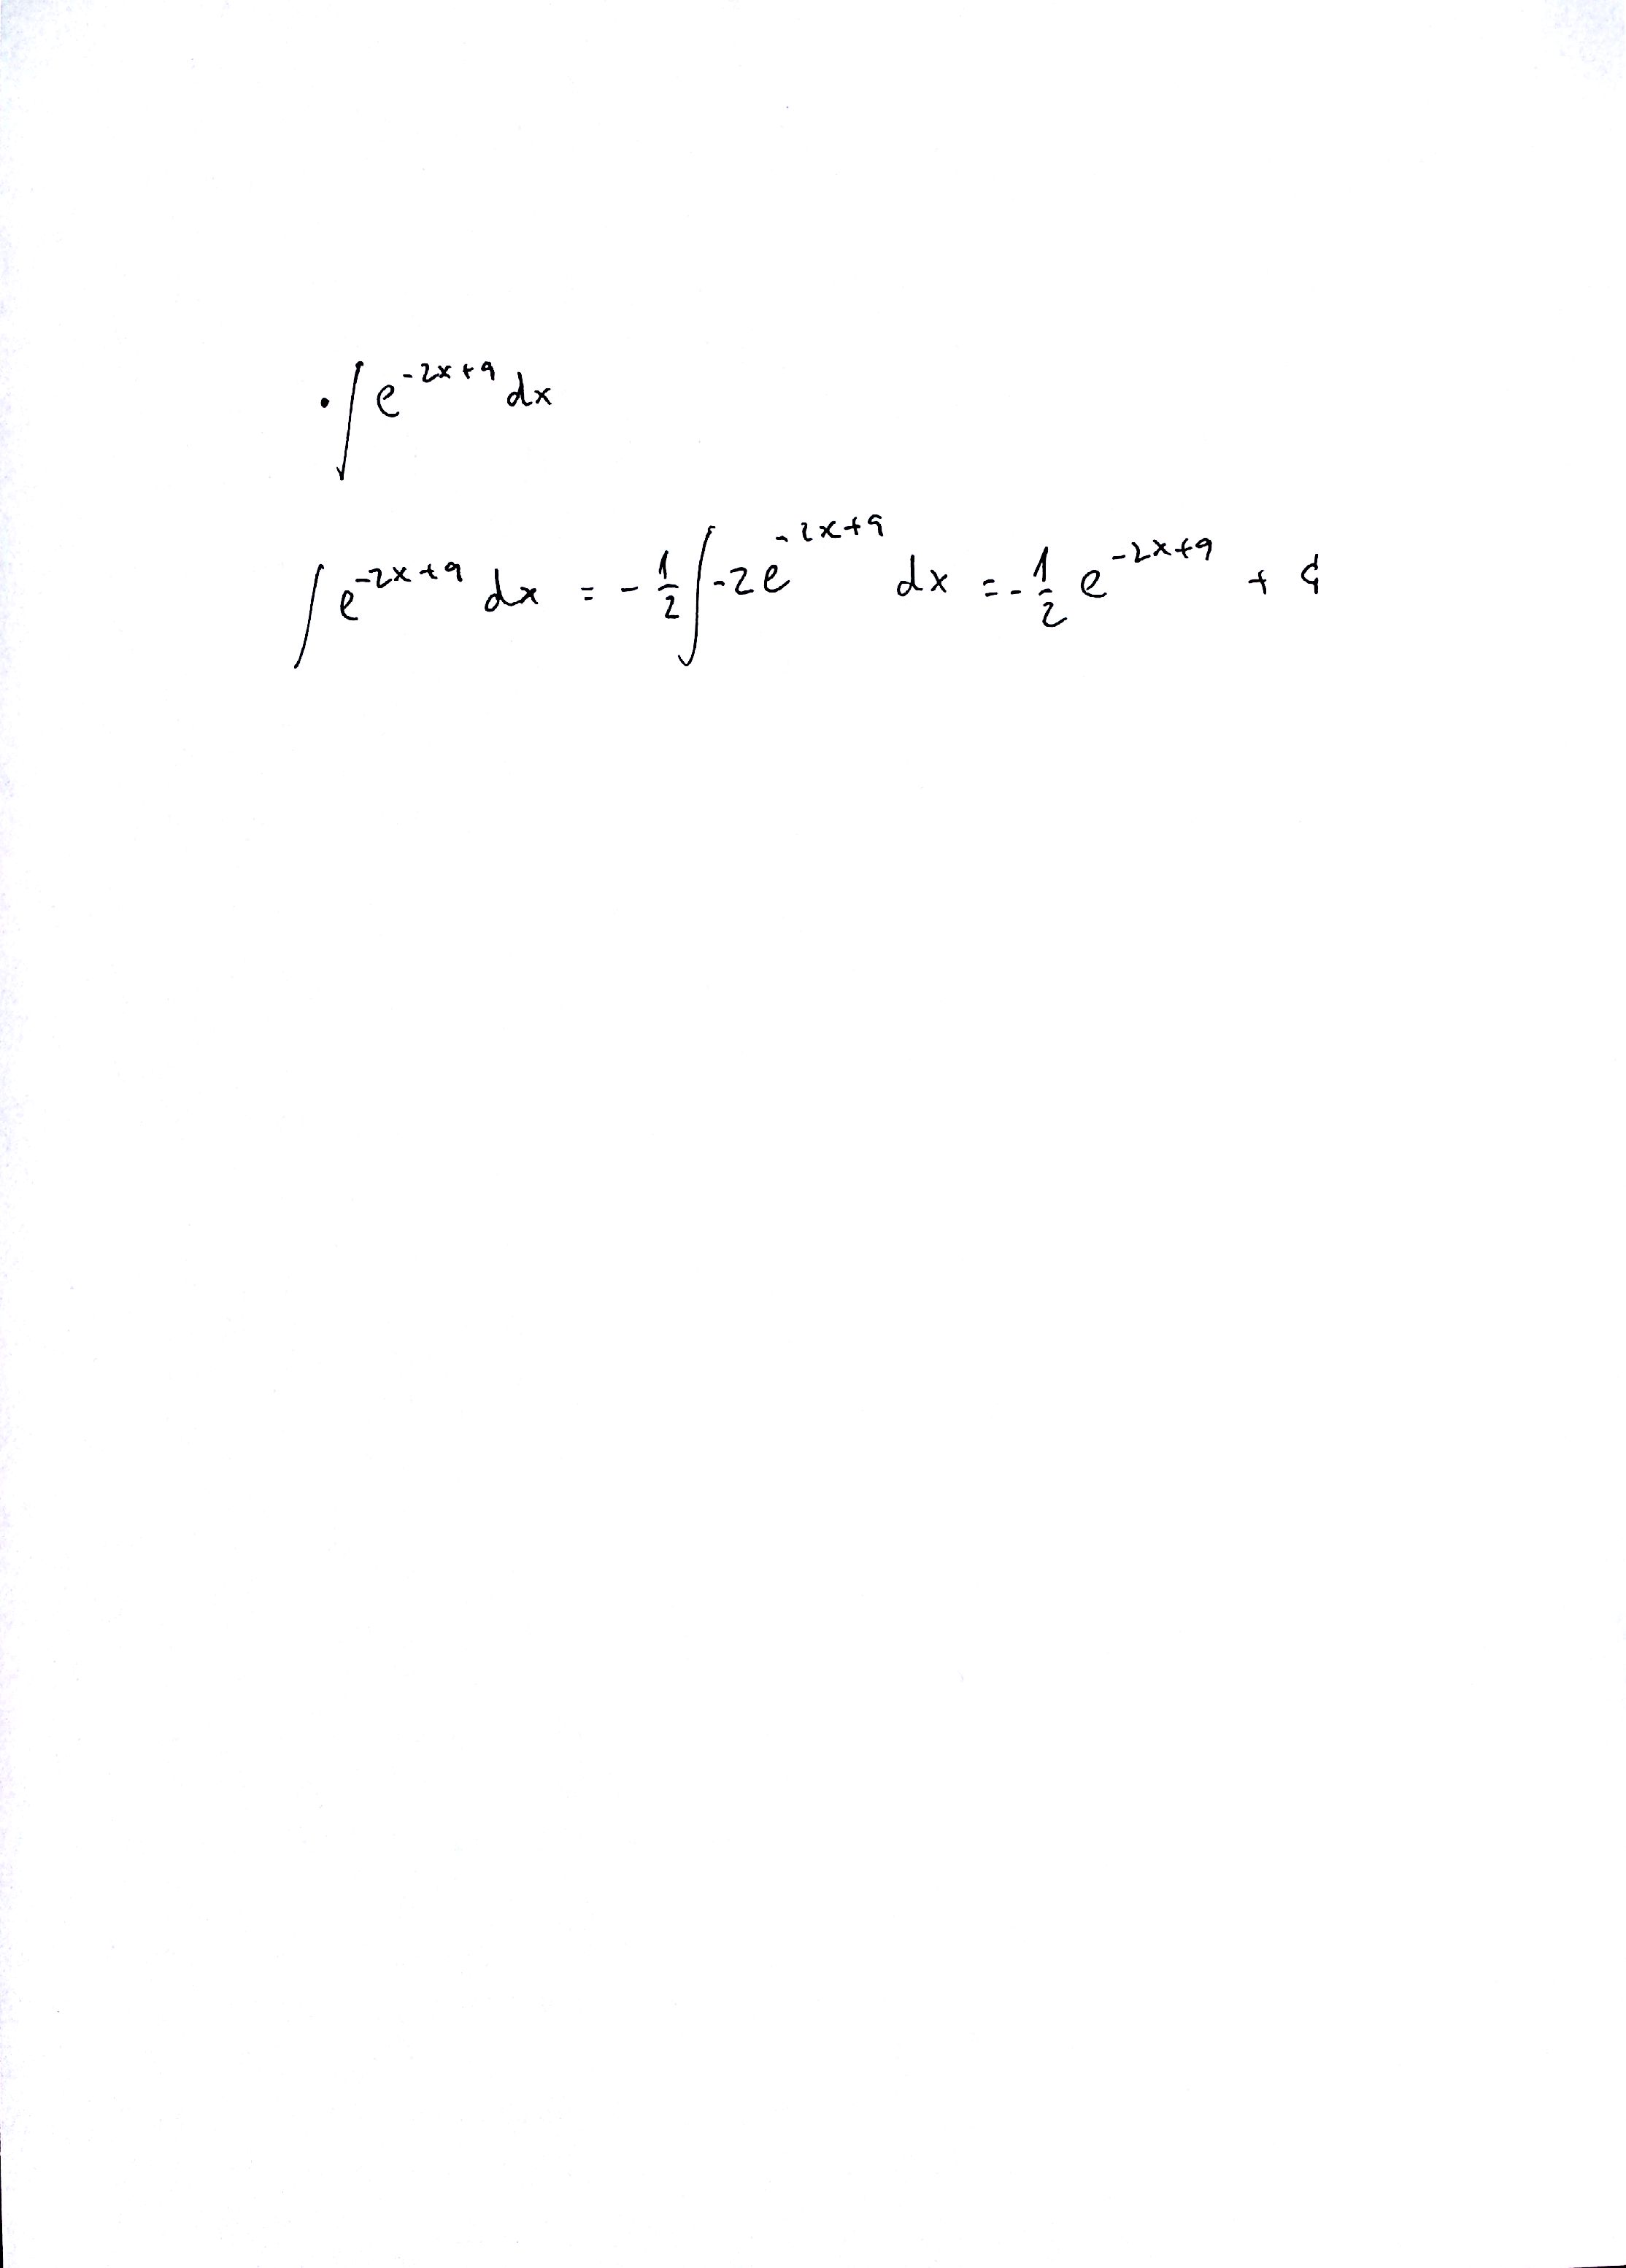 · ∫ e^{-2x+9} dx
∫ e^{-2x+9} dx = -\frac{1}{2} ∫ -2e^{-2x+9} dx = -\frac{1}{2} e^{-2x+9} + ¢